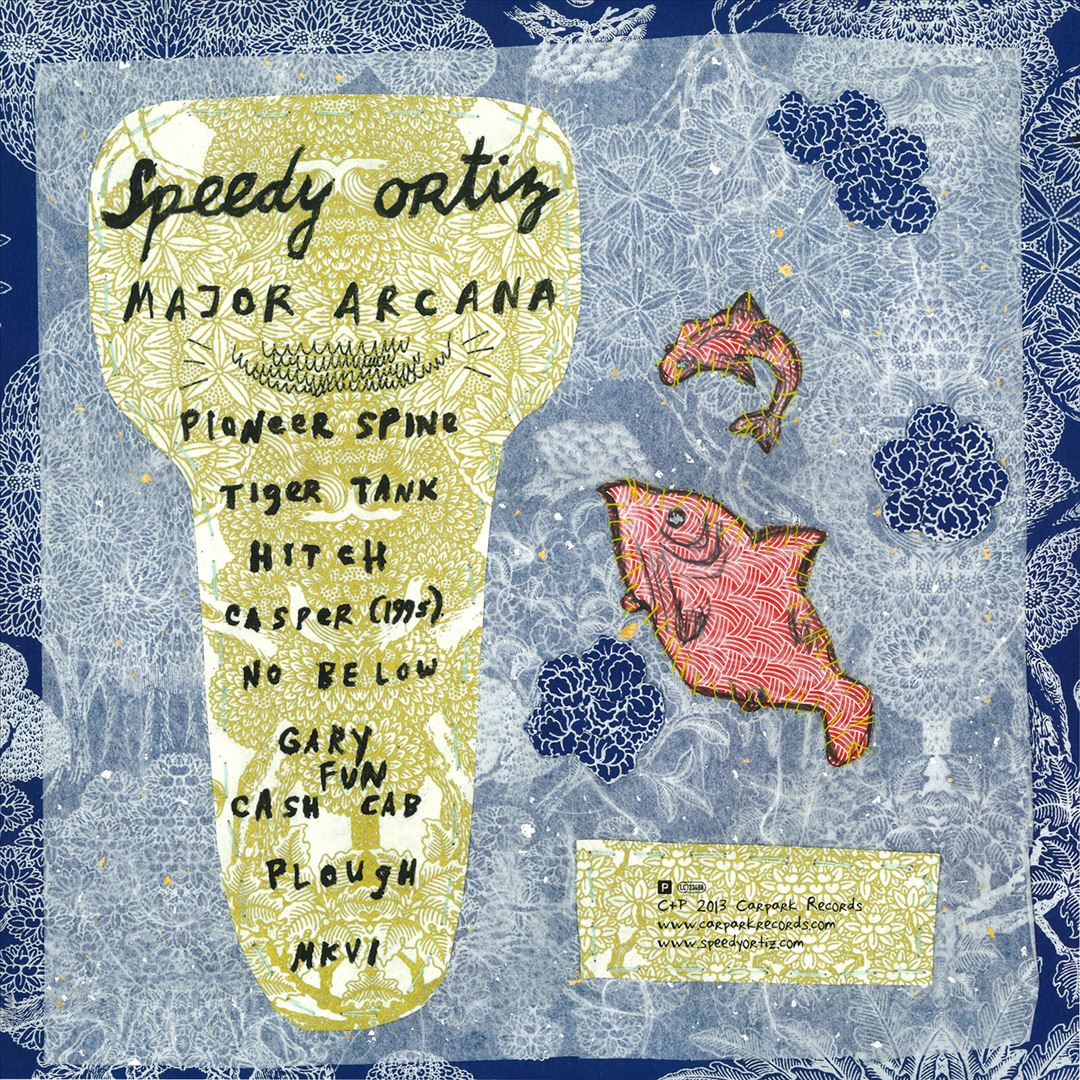 Speedy Ortiz
MAJOR ARCANA
PIONEER SPINE
TIGER TANK
HITCH
CASPER (1995)
NO BELOW
GARY
FUN
CASH CAB
PLOUGH
MKVI
P LC 23488
C+P 2013 Carpark Records
www.carparkrecords.com
www.speedyortiz.com